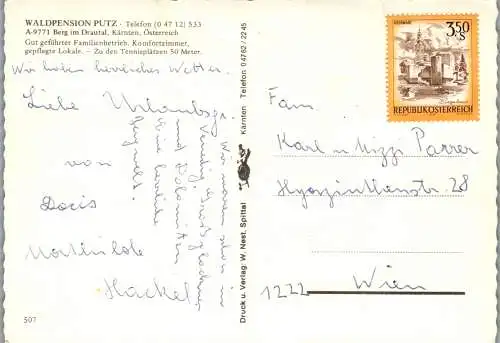 WALDPENSION PUTZ · Telefon (0 47 12) 533
A-9771 Berg im Drautal, Kärnten, Österreich
Gut geführter Familienbetrieb. Komfortzimmer,
gepflegte Lokale. – Zu den Tennisplätzen 50 Meter.
Wir haben herrliches Wetter.
Liebe Urlaubsgr.
von
Doris
Mathilde
Hackel
Wir waren schon in
Venedig, Grossglockner
und Dolomiten
Eine
507
Druck u. Verlag: W. Nest, Spittal Kärnten Telefon 04762/2245
3,50
S
REPUBLIK ÖSTERREICH
Fam.
Karl u Mizzi Parrer
28
1222 Wien